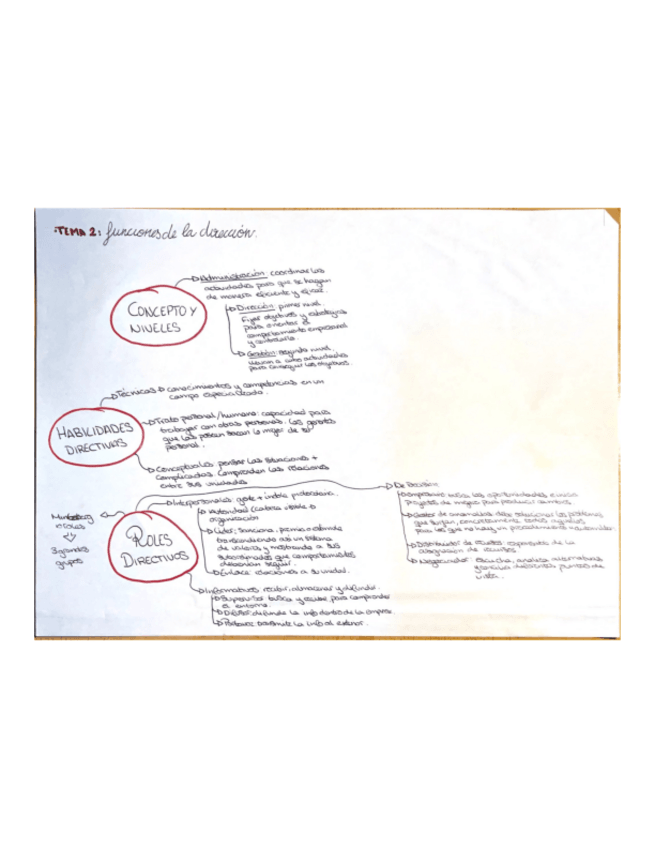 ·TEMA 2: funciones de la dirección.
CONCEPTO Y
NIVELES
Administración: coordinar las
actividades para que se hagan
de manera eficiente y eficaz.
Dirección: primer nivel.
Fijar objetivos y estrategias
para orientar el
comportamiento empresarial
y controlarlo.
Gestión: segundo nivel.
a cabo actividades
para conseguir los objetivos.
HABILIDADES
DIRECTIVAS
Técnicas → conocimientos y competencias en un
campo especializado.
Trato personal/humano: capacidad para
trabajar con otras personas. Los gerentes
que las poseen sacan lo mejor de su
personal.
Conceptuales pensar las situaciones +
complicadas. Comprenden las relaciones
entre sus unidades
ROLES
DIRECTIVOS
Mintzberg
roles
3 grandes
grupos
Interpersonales: gpte +
Autoridad cabeza visible
organización
Líder: sanciona, premia
un sistema
de valores y mostrando a sus
subordinados que comportamientos
deberían seguir.
Enlace relaciones a su unidad.
Informativos recibir, almacenar y difundir.
Supervisor busca y recibe para comprender
el entorno.
Difusor difunde la info dentro de la empresa.
Portavoz transmite la info al exterior.
De decisión
Empresario busca las oportunidades e inicia
proyectos de mejora para producir cambios.
Gestor de anomalías debe solucionar los problemas
que surjan,
para los que no hay un procedimiento
Distribuidor de recursos: responsable de la
asignación de recursos.
Negociador: escucha, analiza alternativas
y diferentes puntos de
vista.